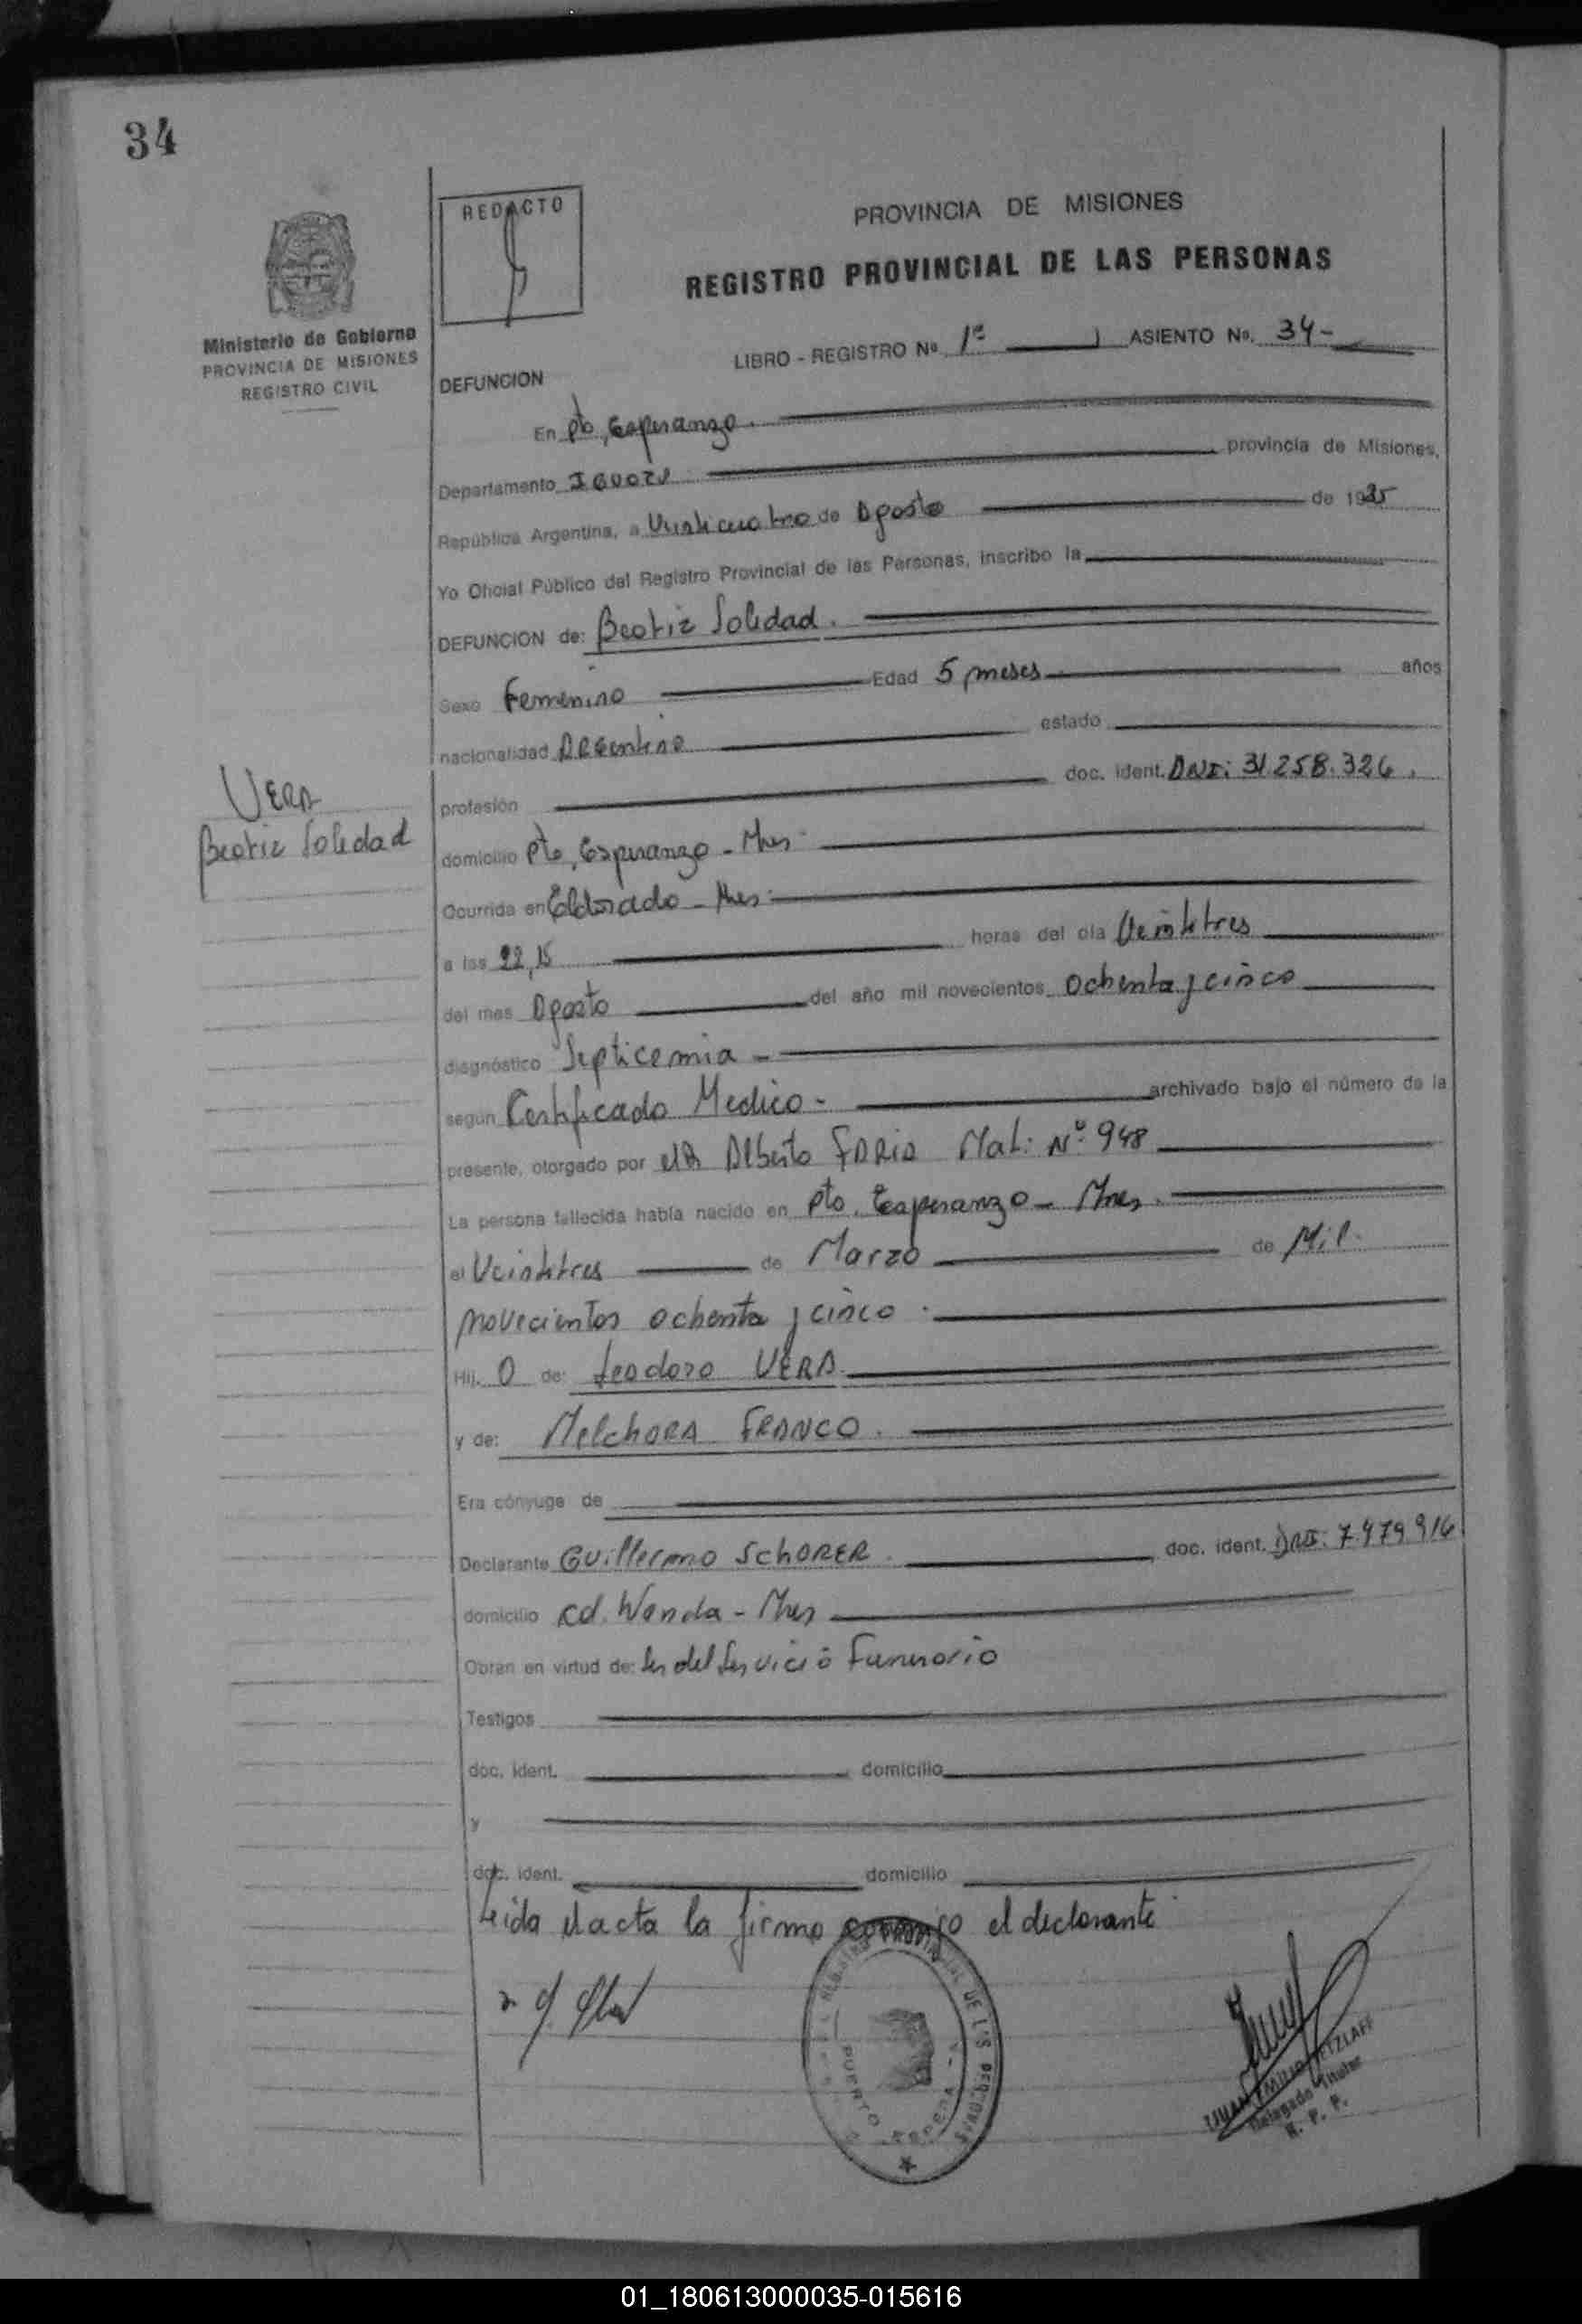 34
REDACTO
PROVINCIA DE MISIONES
REGISTRO PROVINCIAL DE LAS PERSONAS
Ministerio de Gobierno
PROVINCIA DE MISIONES
REGISTRO CIVIL
LIBRO - REGISTRO Nº 1º ASIENTO No. 34-
DEFUNCION
En pto, Esperanza.
Departamento IGUAZU provincia de Misiones,
República Argentina, a Veinticuatro de Agosto de 1985
Yo Oficial Público del Registro Provincial de las Personas, inscribo la
DEFUNCION de: Beatriz Soledad.
Sexo Femenino Edad 5 meses años
nacionalidad Argentina estado
profesión doc. ident. DNI: 31.258.326.
VERA
Beatriz Soledad
domicilio Pto, Esperanza - Mnes
Ocurrida en Eldorado - Mnes
a las 22,15 horas del día Veintitres
del mes Agosto del año mil novecientos ochenta y cinco
diagnóstico Septicemia -
según Certificado Medico - archivado bajo el número de la
presente, otorgado por el Dr Alberto FARIA Mat: Nº 948
La persona fallecida había nacido en Pto. Esperanza - Mnes.
el Veintitres de Marzo de Mil
novecientos ochenta y cinco.
Hij. a de: teodoro VERA
y de: Melchora FRANCO.
Era cónyuge de
Declarante Guillermo SchORER doc. ident. DNI: 7.479.916
domicilio cd. Wanda - Mnes
Obran en virtud de: Ser del Servicio Funerario
Testigos
doc. ident. domicilio
y
doc. ident. domicilio
Leida el acta la firma conmigo el declarante
REGISTRO PROVINCIAL DE LAS PERSONAS
PUERTO ESPERANZA
Delegado Titular
R. P. P.
01_180613000035-015616